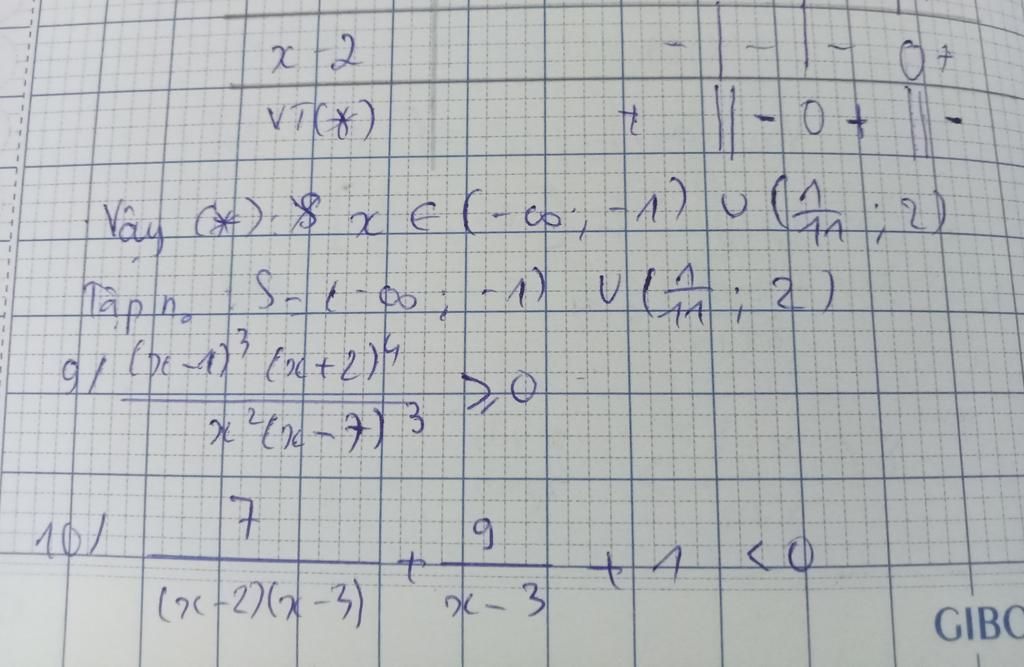 x - 2 - | - | - 0 +
VT(*) + || - 0 + || -
Vậy (*) : x ∈ (-∞ ; -1) ∪ (1/11 ; 2)
Tập n₀ : S = (-∞ ; -1) ∪ (1/11 ; 2)
9/ (x-1)³ (x+2)⁴ / x²(x-7)³ ≥ 0
10/ 7 / (x-2)(x-3) + 9 / x-3 + 1 < 0
GIBO